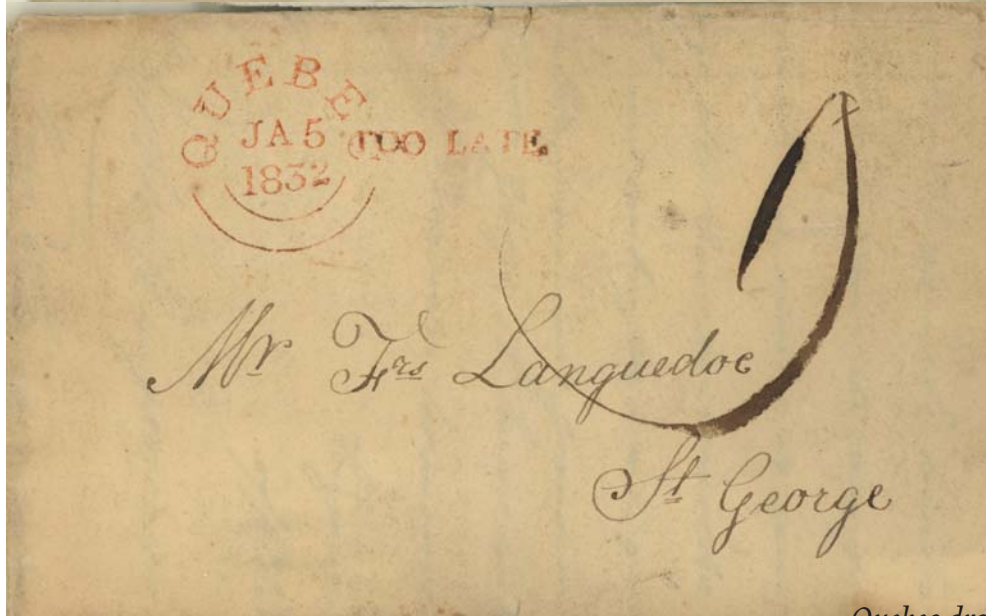 QUEBEC
JA 5
1832
TOO LATE.
9
Mr Frs Languedoc
St George
Quebec